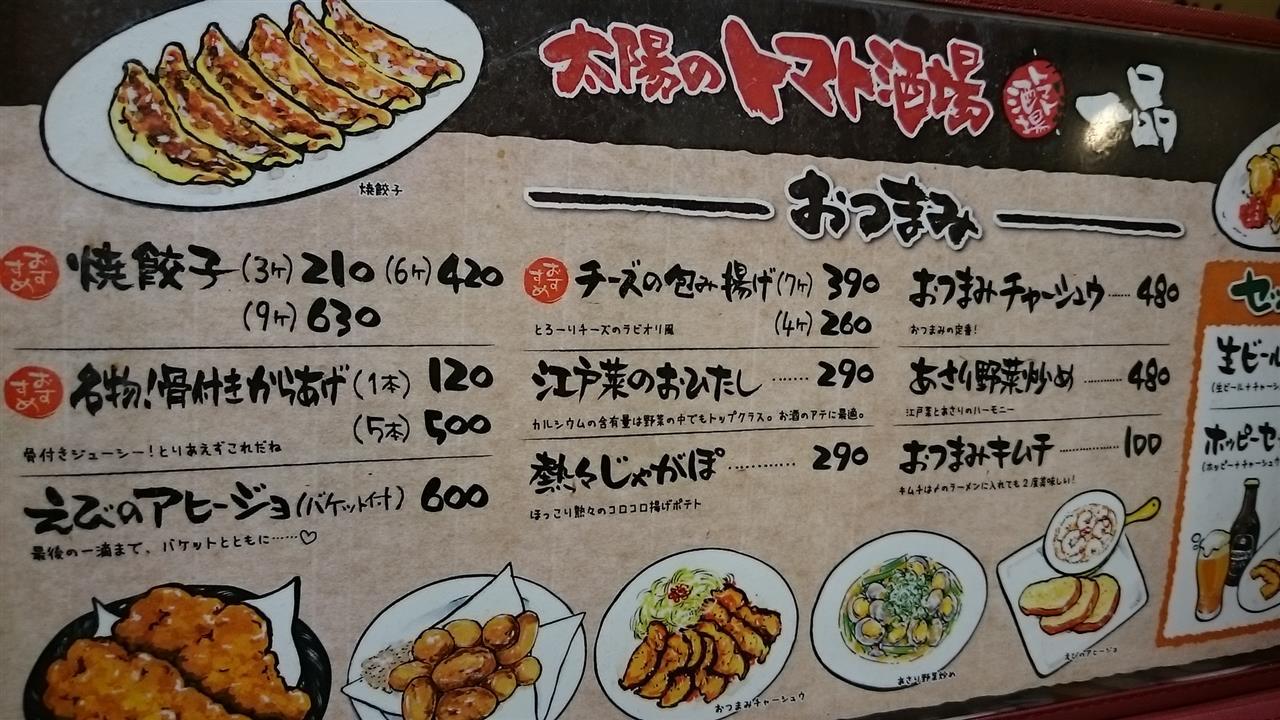 太陽のトマト酒場
一品
焼餃子
おつまみ
おすすめ
焼餃子(3ケ)210(6ケ)420
(9ケ)630
おすすめ
名物!骨付きからあげ(1本)120
(5本)500
骨付きジューシー!とりあえずこれだね
えびのアヒージョ(バケット付)600
最後の一滴まで、バケットとともに……♡
おすすめ
チーズの包み揚げ(7ケ)390
とろーりチーズのラビオリ風
(4ケ)260
江戸菜のおひたし……290
カルシウムの含有量は野菜の中でもトップクラス。お酒のアテに最適。
熱々じゃがぽ…………290
ほっこり熱々のコロコロ揚げポテト
おつまみチャーシュウ……480
おつまみの定番!
あさり野菜炒め…………480
江戸菜とあさりのハーモニー
おつまみキムチ…………100
キムチは〆のラーメンに入れても2度美味しい!
生ビール
(生ビール+チャーシ
ホッピーセ
(ホッピー+チャーシュウ
おつまみチャーシュウ
あさり野菜炒め
えびのアヒージョ